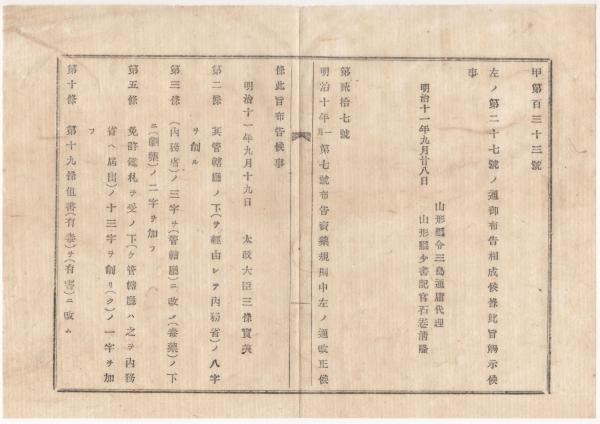 甲第百三十三號
左ノ第二十七號ノ通御布告相成候條此旨觸示候
事
明治十一年九月廿八日
山形縣令三島通庸代理
山形縣少書記官石卷清隆
第貳拾七號
明治十年一月第七號布告賣藥規則中左ノ通改正候
條此旨布告候事
明治十一年九月十九日　太政大臣三條實美
第二條　其管轄廳ノ下(ヲ經由シテ內務省)ノ八字
ヲ削ル
第三條　(內務省)ノ三字ヲ(管轄廳)ニ改メ(毒藥)ノ下
ニ(劇藥)ノ二字ヲ加フ
第五條　免許鑑札ヲ受ノ下(ケ管轄廳ハ之ヲ內務
省ヘ屆出)ノ十三字ヲ削リ(ク)ノ一字ヲ加
フ
第十條　第十九條但書(有毒)ヲ(有害)ニ改ム